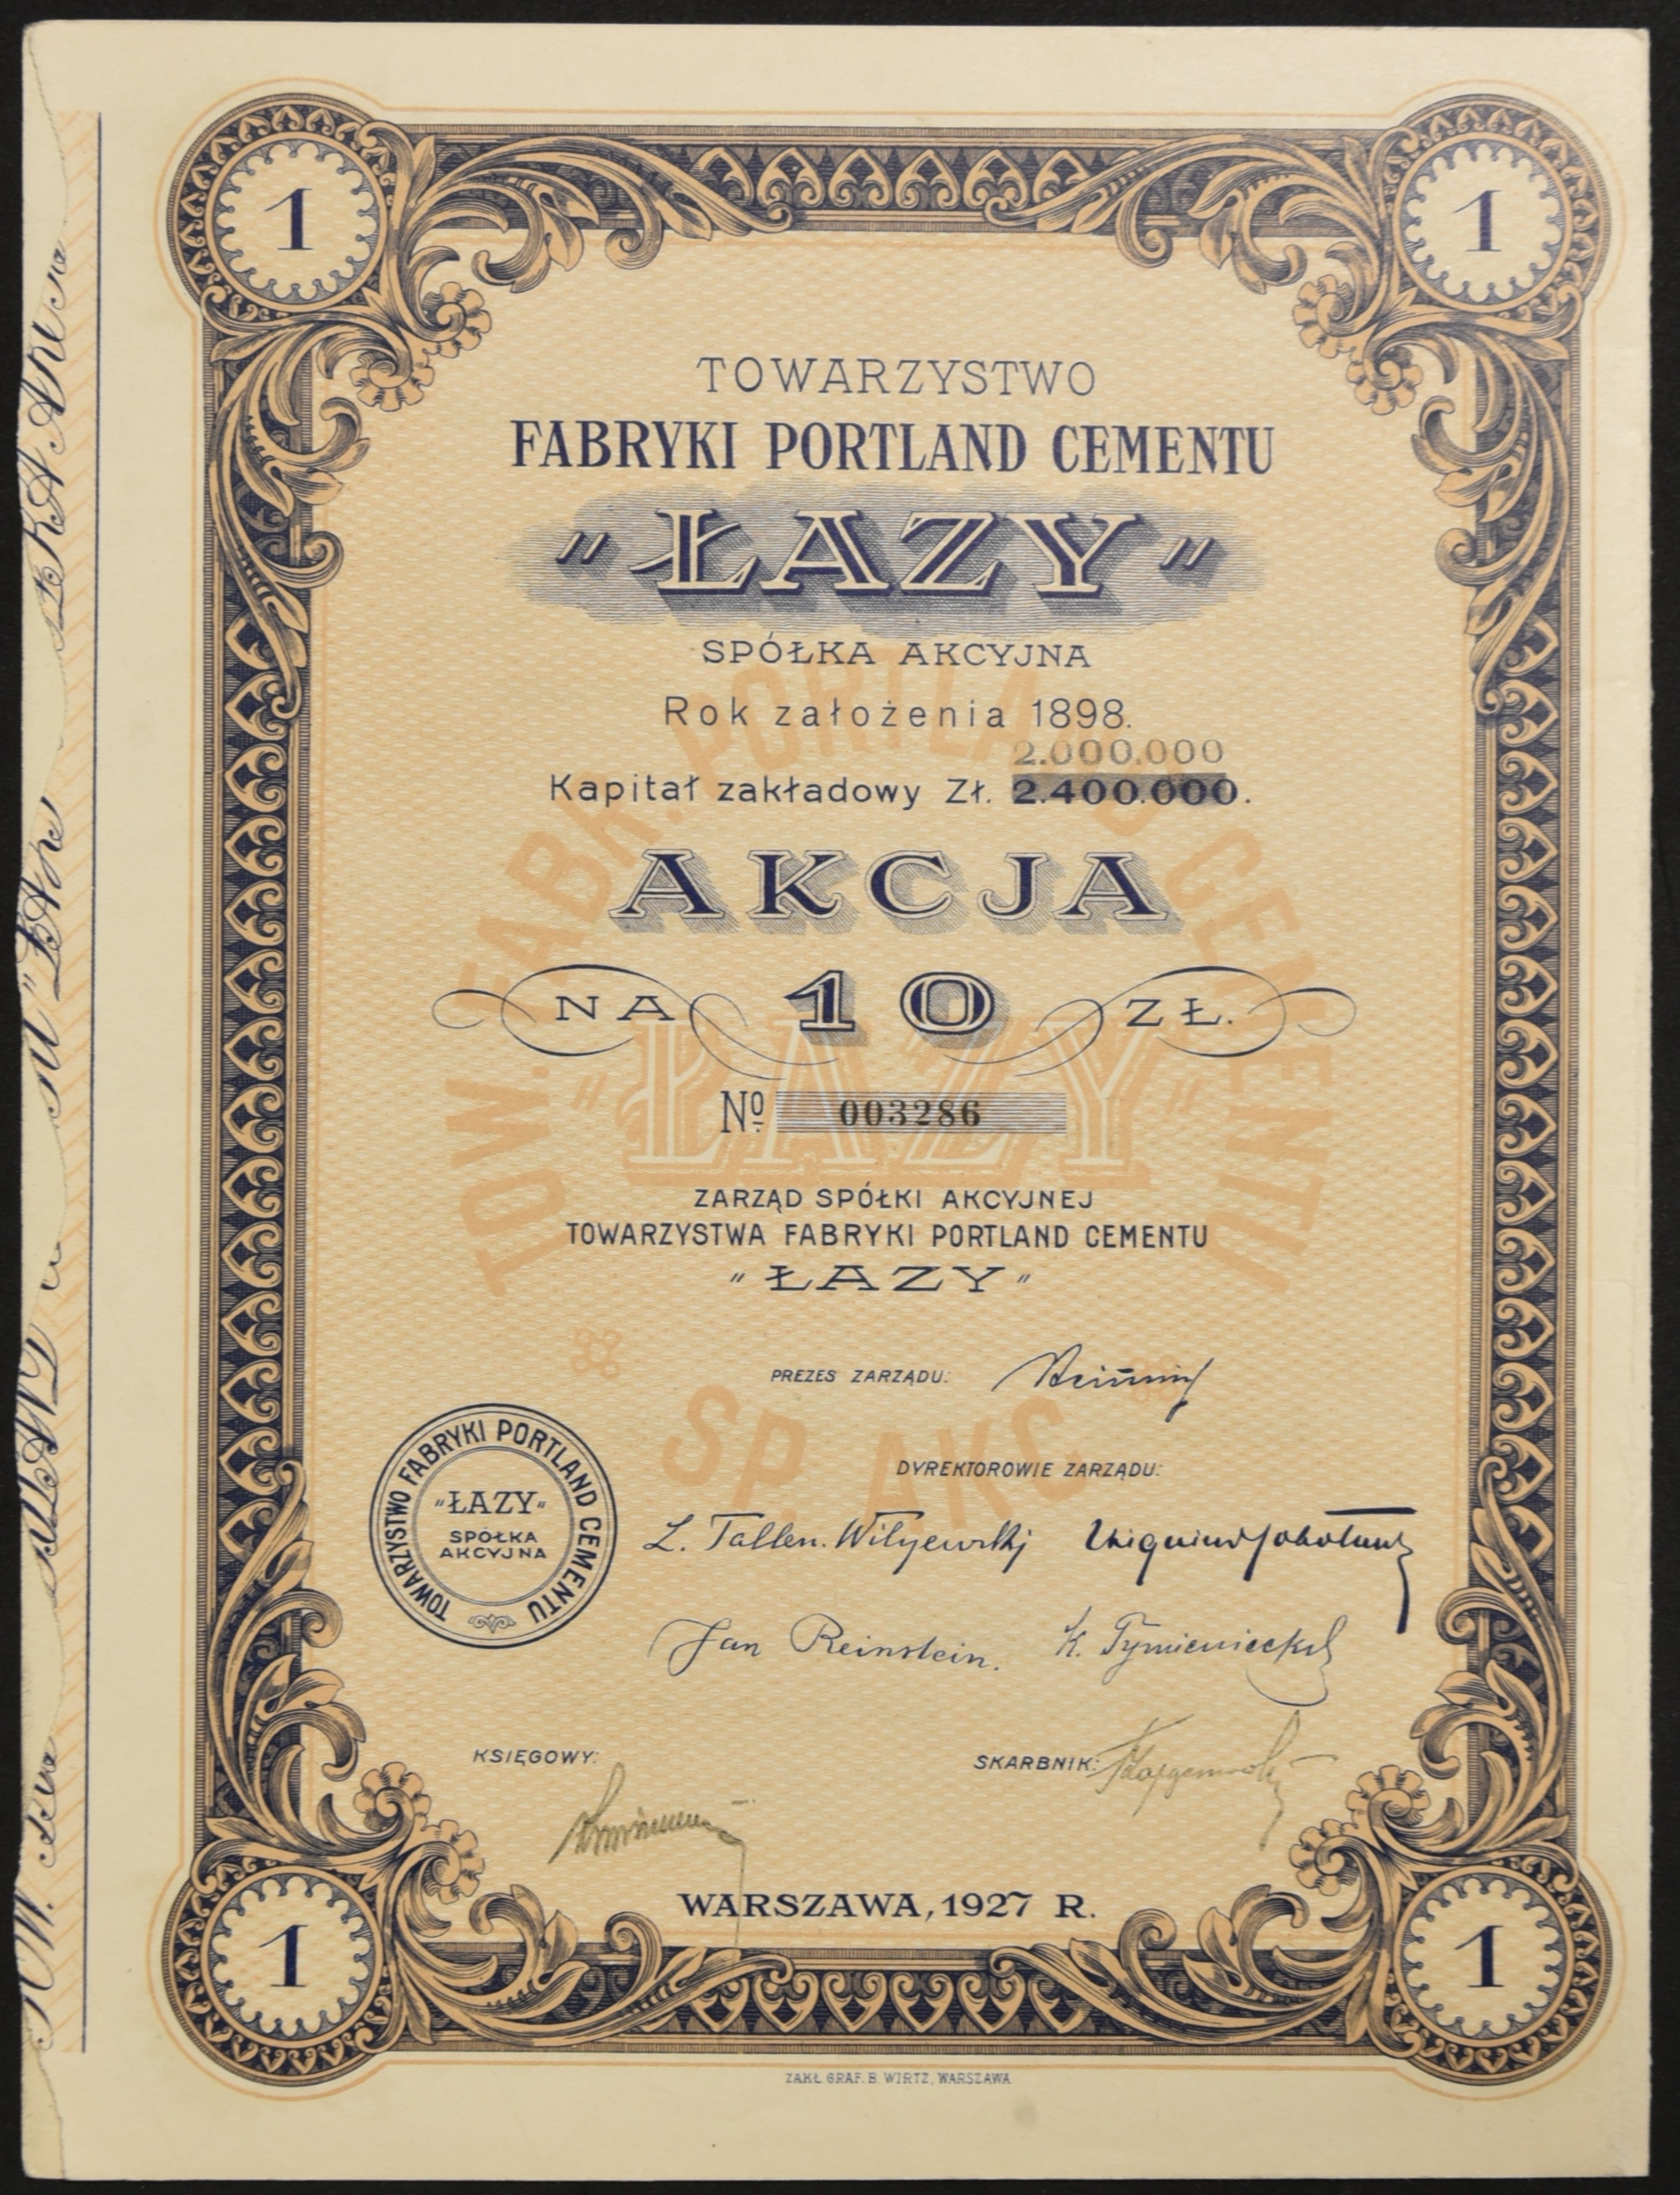 1
1
TOWARZYSTWO
FABRYKI PORTLAND CEMENTU
"ŁAZY"
SPÓŁKA AKCYJNA
Rok założenia 1898.
2.000.000
Kapitał zakładowy Zł. 2.400.000.
AKCJA
NA 10 ZŁ.
No 003286
TOW. FABR. PORTLAND CEMENTU
"ŁAZY"
SP. AKC.
ZARZĄD SPÓŁKI AKCYJNEJ
TOWARZYSTWA FABRYKI PORTLAND CEMENTU
"ŁAZY"
PREZES ZARZĄDU:
DYREKTOROWIE ZARZĄDU:
TOWARZYSTWO FABRYKI PORTLAND CEMENTU
"ŁAZY"
SPÓŁKA
AKCYJNA
Jan Reinstein.
K. Tymieniecki
KSIĘGOWY:
SKARBNIK:
WARSZAWA, 1927 R.
1
1
ZAKŁ. GRAF. B. WIRTZ, WARSZAWA